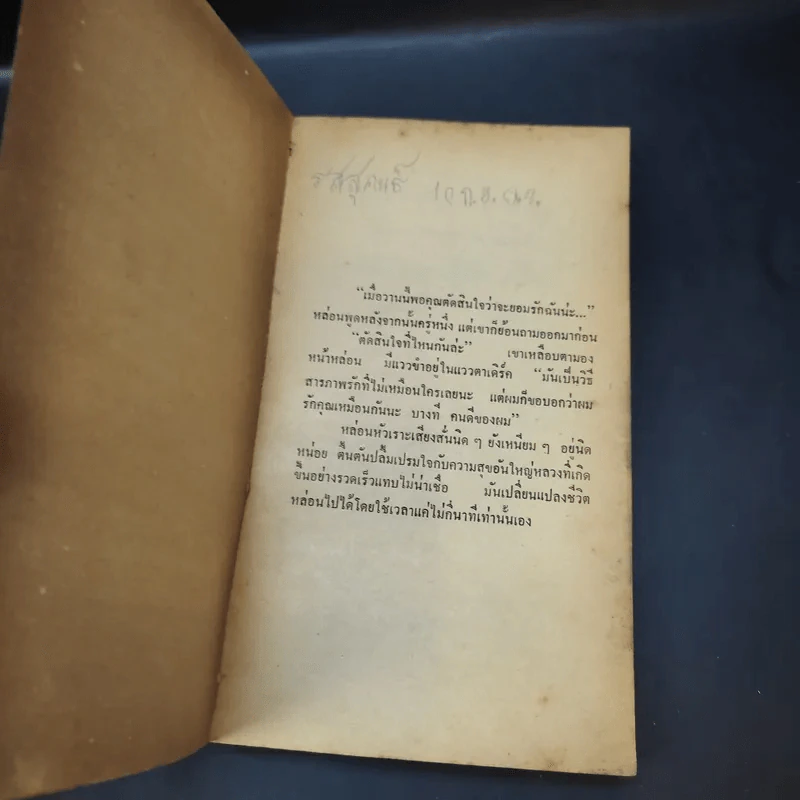 รสสุคนธ์ 10 ก.ย.
"เมื่อวานนี้พอคุณตัดสินใจว่าจะยอมรักฉันน่ะ..."
หล่อนพูดหลังจากนั้นครู่หนึ่ง แต่เขาก็ย้อนถามออกมาก่อน
"ตัดสินใจที่ไหนกันล่ะ" เขาเหลือบตามอง
หน้าหล่อน มีแววขำอยู่ในแววตาเดิร์ค "มันเป็นวิธี
สารภาพรักที่ไม่เหมือนใครเลยนะ แต่ผมก็ขอบอกว่าผม
รักคุณเหมือนกันนะ บางที คนดีของผม"
หล่อนหัวเราะเสียงสั่นนิด ๆ ยังเหนียม ๆ อยู่นิด
หน่อย ตื้นตันปลื้มเปรมใจกับความสุขอันใหญ่หลวงที่เกิด
ขึ้นอย่างรวดเร็วแทบไม่น่าเชื่อ มันเปลี่ยนแปลงชีวิต
หล่อนไปได้โดยใช้เวลาแค่ไม่กี่นาทีเท่านั้นเอง